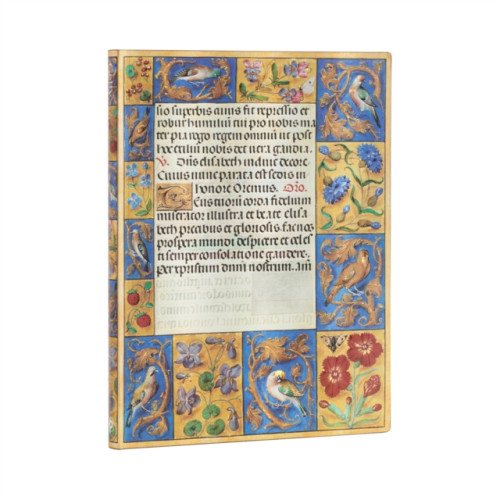 sio superbis auius fit repressio et
robur humiliũ tu pro nobis ma
ter pia rogo regem omniũ ut post
hoc exiliũ nobis det vera gaudia.
V. Dñs elisabeth induit decore.
Cuius nunc parata est sedis in
honore Oremus. Oro.
Tuorum corda fidelium
miserator illustra et beate elisa
beth precibus et gloriosis fac nos
prospera mundi despicere et celes
ti semper consolatione gaudere.
Per christum dñm nostrum. am